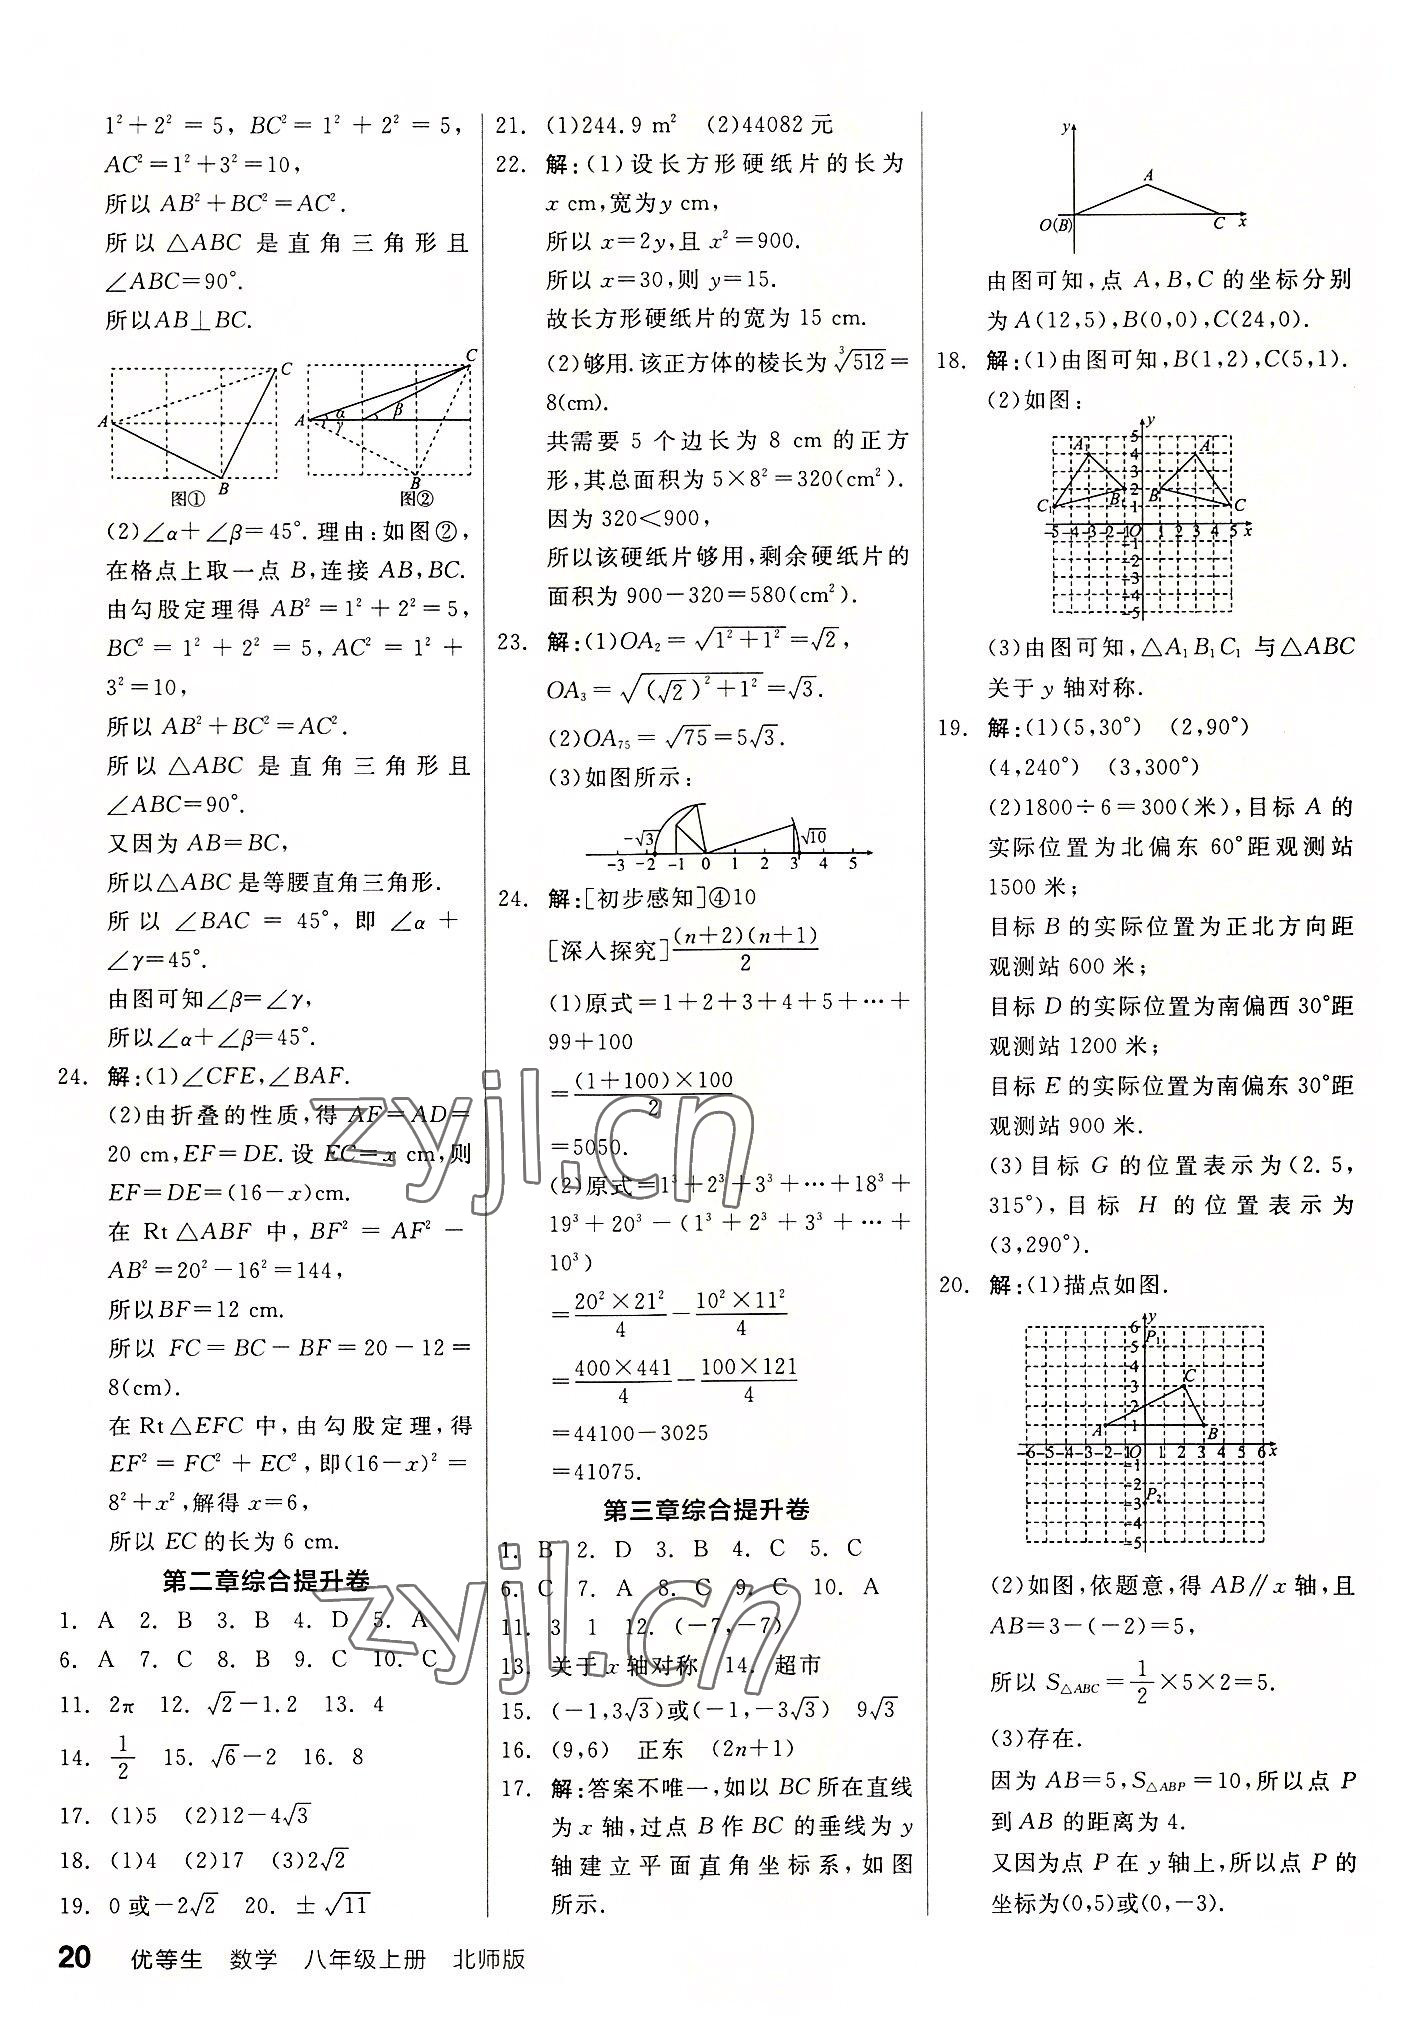 1²+2²=5, BC²=1²+2²=5,
AC²=1²+3²=10,
所以 AB²+BC²=AC².
所以△ABC 是直角三角形且
∠ABC=90°.
所以AB⊥BC.
A B C 图①
A B C α β γ 图②
(2)∠α+∠β=45°.理由:如图②,
在格点上取一点 B,连接 AB,BC.
由勾股定理得 AB²=1²+2²=5,
BC²=1²+2²=5,AC²=1²+
3²=10,
所以 AB²+BC²=AC².
所以△ABC 是直角三角形且
∠ABC=90°.
又因为 AB=BC,
所以△ABC是等腰直角三角形.
所以∠BAC=45°,即∠α+
∠γ=45°.
由图可知∠β=∠γ,
所以∠α+∠β=45°.
24. 解:(1)∠CFE,∠BAF.
(2)由折叠的性质,得 AF=AD=
20 cm,EF=DE.设 EC=x cm,则
EF=DE=(16-x)cm.
在 Rt△ABF 中,BF²=AF²-
AB²=20²-16²=144,
所以BF=12 cm.
所以 FC=BC-BF=20-12=
8(cm).
在Rt△EFC 中,由勾股定理,得
EF²=FC²+EC²,即(16-x)²=
8²+x²,解得 x=6,
所以 EC的长为 6 cm.
第二章综合提升卷
1. A 2. B 3. B 4. D 5. A
6. A 7. C 8. B 9. C 10. C
11. 2π 12. √2-1.2 13. 4
14. 1/2 15. √6-2 16. 8
17. (1)5 (2)12-4√3
18. (1)4 (2)17 (3)2√2
19. 0或-2√2 20. ±√11
21. (1)244.9 m² (2)44082 元
22. 解:(1)设长方形硬纸片的长为
x cm,宽为y cm,
所以 x=2y,且 x²=900.
所以 x=30,则 y=15.
故长方形硬纸片的宽为 15 cm.
(2)够用.该正方体的棱长为∛512=
8(cm).
共需要 5 个边长为 8 cm 的正方
形,其总面积为 5×8²=320(cm²).
因为 320<900,
所以该硬纸片够用,剩余硬纸片的
面积为 900-320=580(cm²).
23. 解:(1)OA₂=√(1²+1²)=√2,
OA₃=√((√2)²+1²)=√3.
(2)OA₇₅=√75=5√3.
(3)如图所示:
-√3 √10
-3 -2 -1 0 1 2 3 4 5
24. 解:[初步感知]④10
[深入探究](n+2)(n+1)/2
(1)原式=1+2+3+4+5+…+
99+100
=(1+100)×100/2
=5050.
(2)原式=1³+2³+3³+…+18³+
19³+20³-(1³+2³+3³+…+
10³)
=20²×21²/4-10²×11²/4
=400×441/4-100×121/4
=44100-3025
=41075.
第三章综合提升卷
1. B 2. D 3. B 4. C 5. C
6. C 7. A 8. C 9. C 10. A
11. 3 1 12. (-7,-7)
13. 关于x轴对称 14. 超市
15. (-1,3√3)或(-1,-3√3) 9√3
16. (9,6) 正东 (2n+1)
17. 解:答案不唯一,如以 BC所在直线
为 x 轴,过点 B作 BC 的垂线为 y
轴建立平面直角坐标系,如图
所示.
y A O(B) C x
由图可知,点 A,B,C 的坐标分别
为A(12,5),B(0,0),C(24,0).
18. 解:(1)由图可知,B(1,2),C(5,1).
(2)如图:
y 5 4 3 2 1 A₁ A B₁ B C₁ C
-5 -4 -3 -2 -1 O 1 2 3 4 5 x
-1 -2 -3 -4 -5
(3)由图可知,△A₁B₁C₁与△ABC
关于 y 轴对称.
19. 解:(1)(5,30°) (2,90°)
(4,240°) (3,300°)
(2)1800÷6=300(米),目标 A 的
实际位置为北偏东 60°距观测站
1500 米;
目标 B 的实际位置为正北方向距
观测站 600 米;
目标 D 的实际位置为南偏西 30°距
观测站 1200 米;
目标 E 的实际位置为南偏东 30°距
观测站 900 米.
(3)目标 G 的位置表示为(2.5,
315°),目标 H 的位置表示为
(3,290°).
20. 解:(1)描点如图.
y 6 5 4 3 2 1 P₁ C A B
-6 -5 -4 -3 -2 -1 O 1 2 3 4 5 6 x
-1 -2 -3 -4 -5 P₂
(2)如图,依题意,得 AB∥x 轴,且
AB=3-(-2)=5,
所以 S△ABC=1/2×5×2=5.
(3)存在.
因为 AB=5,S△ABP=10,所以点 P
到 AB 的距离为 4.
又因为点 P 在 y 轴上,所以点 P 的
坐标为(0,5)或(0,-3).
20 优等生 数学 八年级上册 北师版
zyjl.cn
zyjl.cn